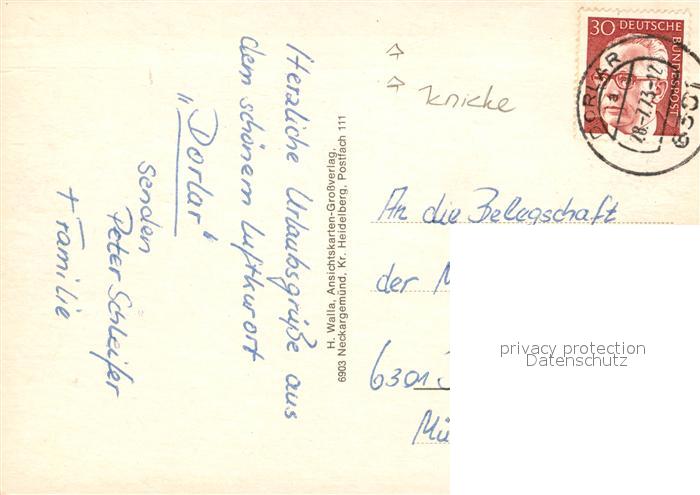 Herzliche Urlaubsgrüße aus
dem schönem Luftkurort
"Dorlar"
senden
Peter Schleifer
+ Familie
H. Walla, Ansichtskarten-Großverlag,
6903 Neckargemünd, Kr. Heidelberg, Postfach 111
Knicke
30 DEUTSCHE BUNDESPOST
DORLAR
a
28.-7.73-12
An die Belegschaft
der M
6301
Mü
privacy protection
Datenschutz